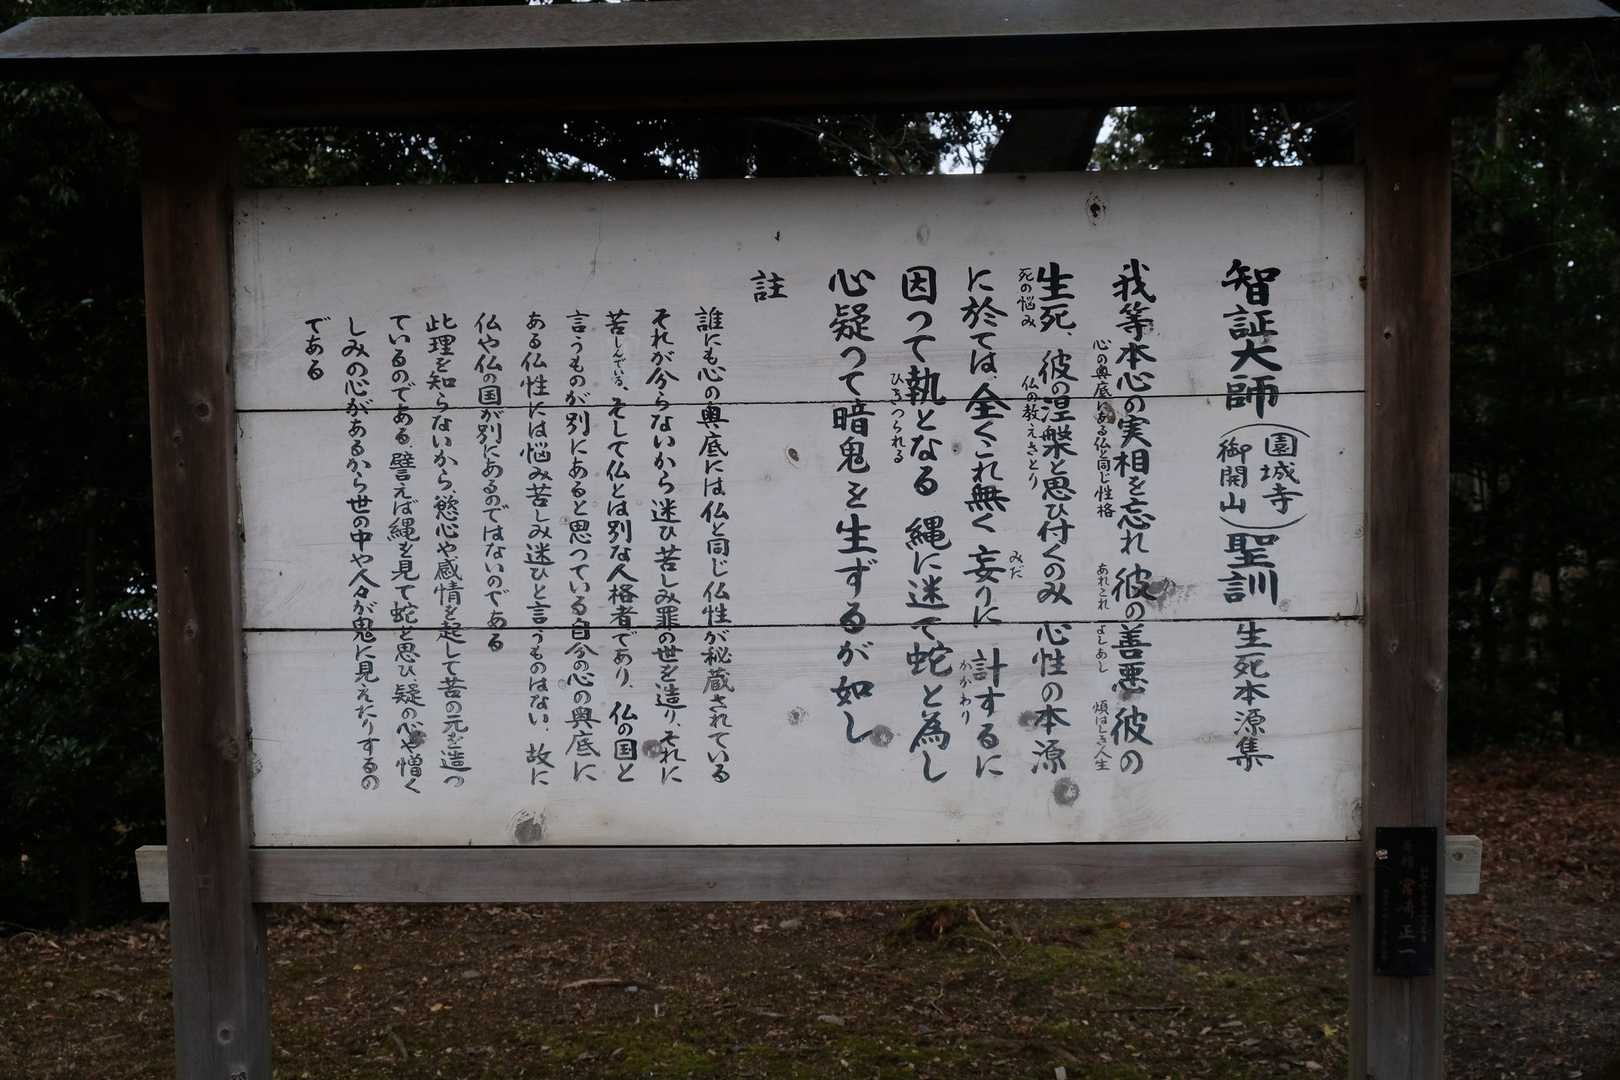 智証大師（園城寺御開山）聖訓 生死本源集
我等本心の実相を忘れ 彼の善悪 彼の
心の奥底にある仏と同じ性格 あれこれ よしあし 煩はしき人生
生死、彼の涅槃と思ひ付くのみ 心性の本源
死の悩み 仏の教えさとり
に於ては、全くこれ無く 妄りに 計するに
みだ かかわり
因って執となる 縄に迷て蛇と為し
ひきつられる
心疑って暗鬼を生ずるが如し
註
誰にも心の奥底には仏と同じ仏性が秘蔵されている
それが分らないから迷ひ苦しみ罪の世を造り、それに
苦しんでいる、そして仏とは別な人格者であり、仏の国と
言うものが別にあると思っている自分の心の奥底に
ある仏性には悩み苦しみ迷ひと言うものはない、故に
仏や仏の国が別にあるのではないのである
此理を知らないから慾心や感情を起して苦の元を造っ
ているのである、譬えば縄を見て蛇と思ひ、疑の心や憎く
しみの心があるから世の中や人々が鬼に見えたりするの
である
正一